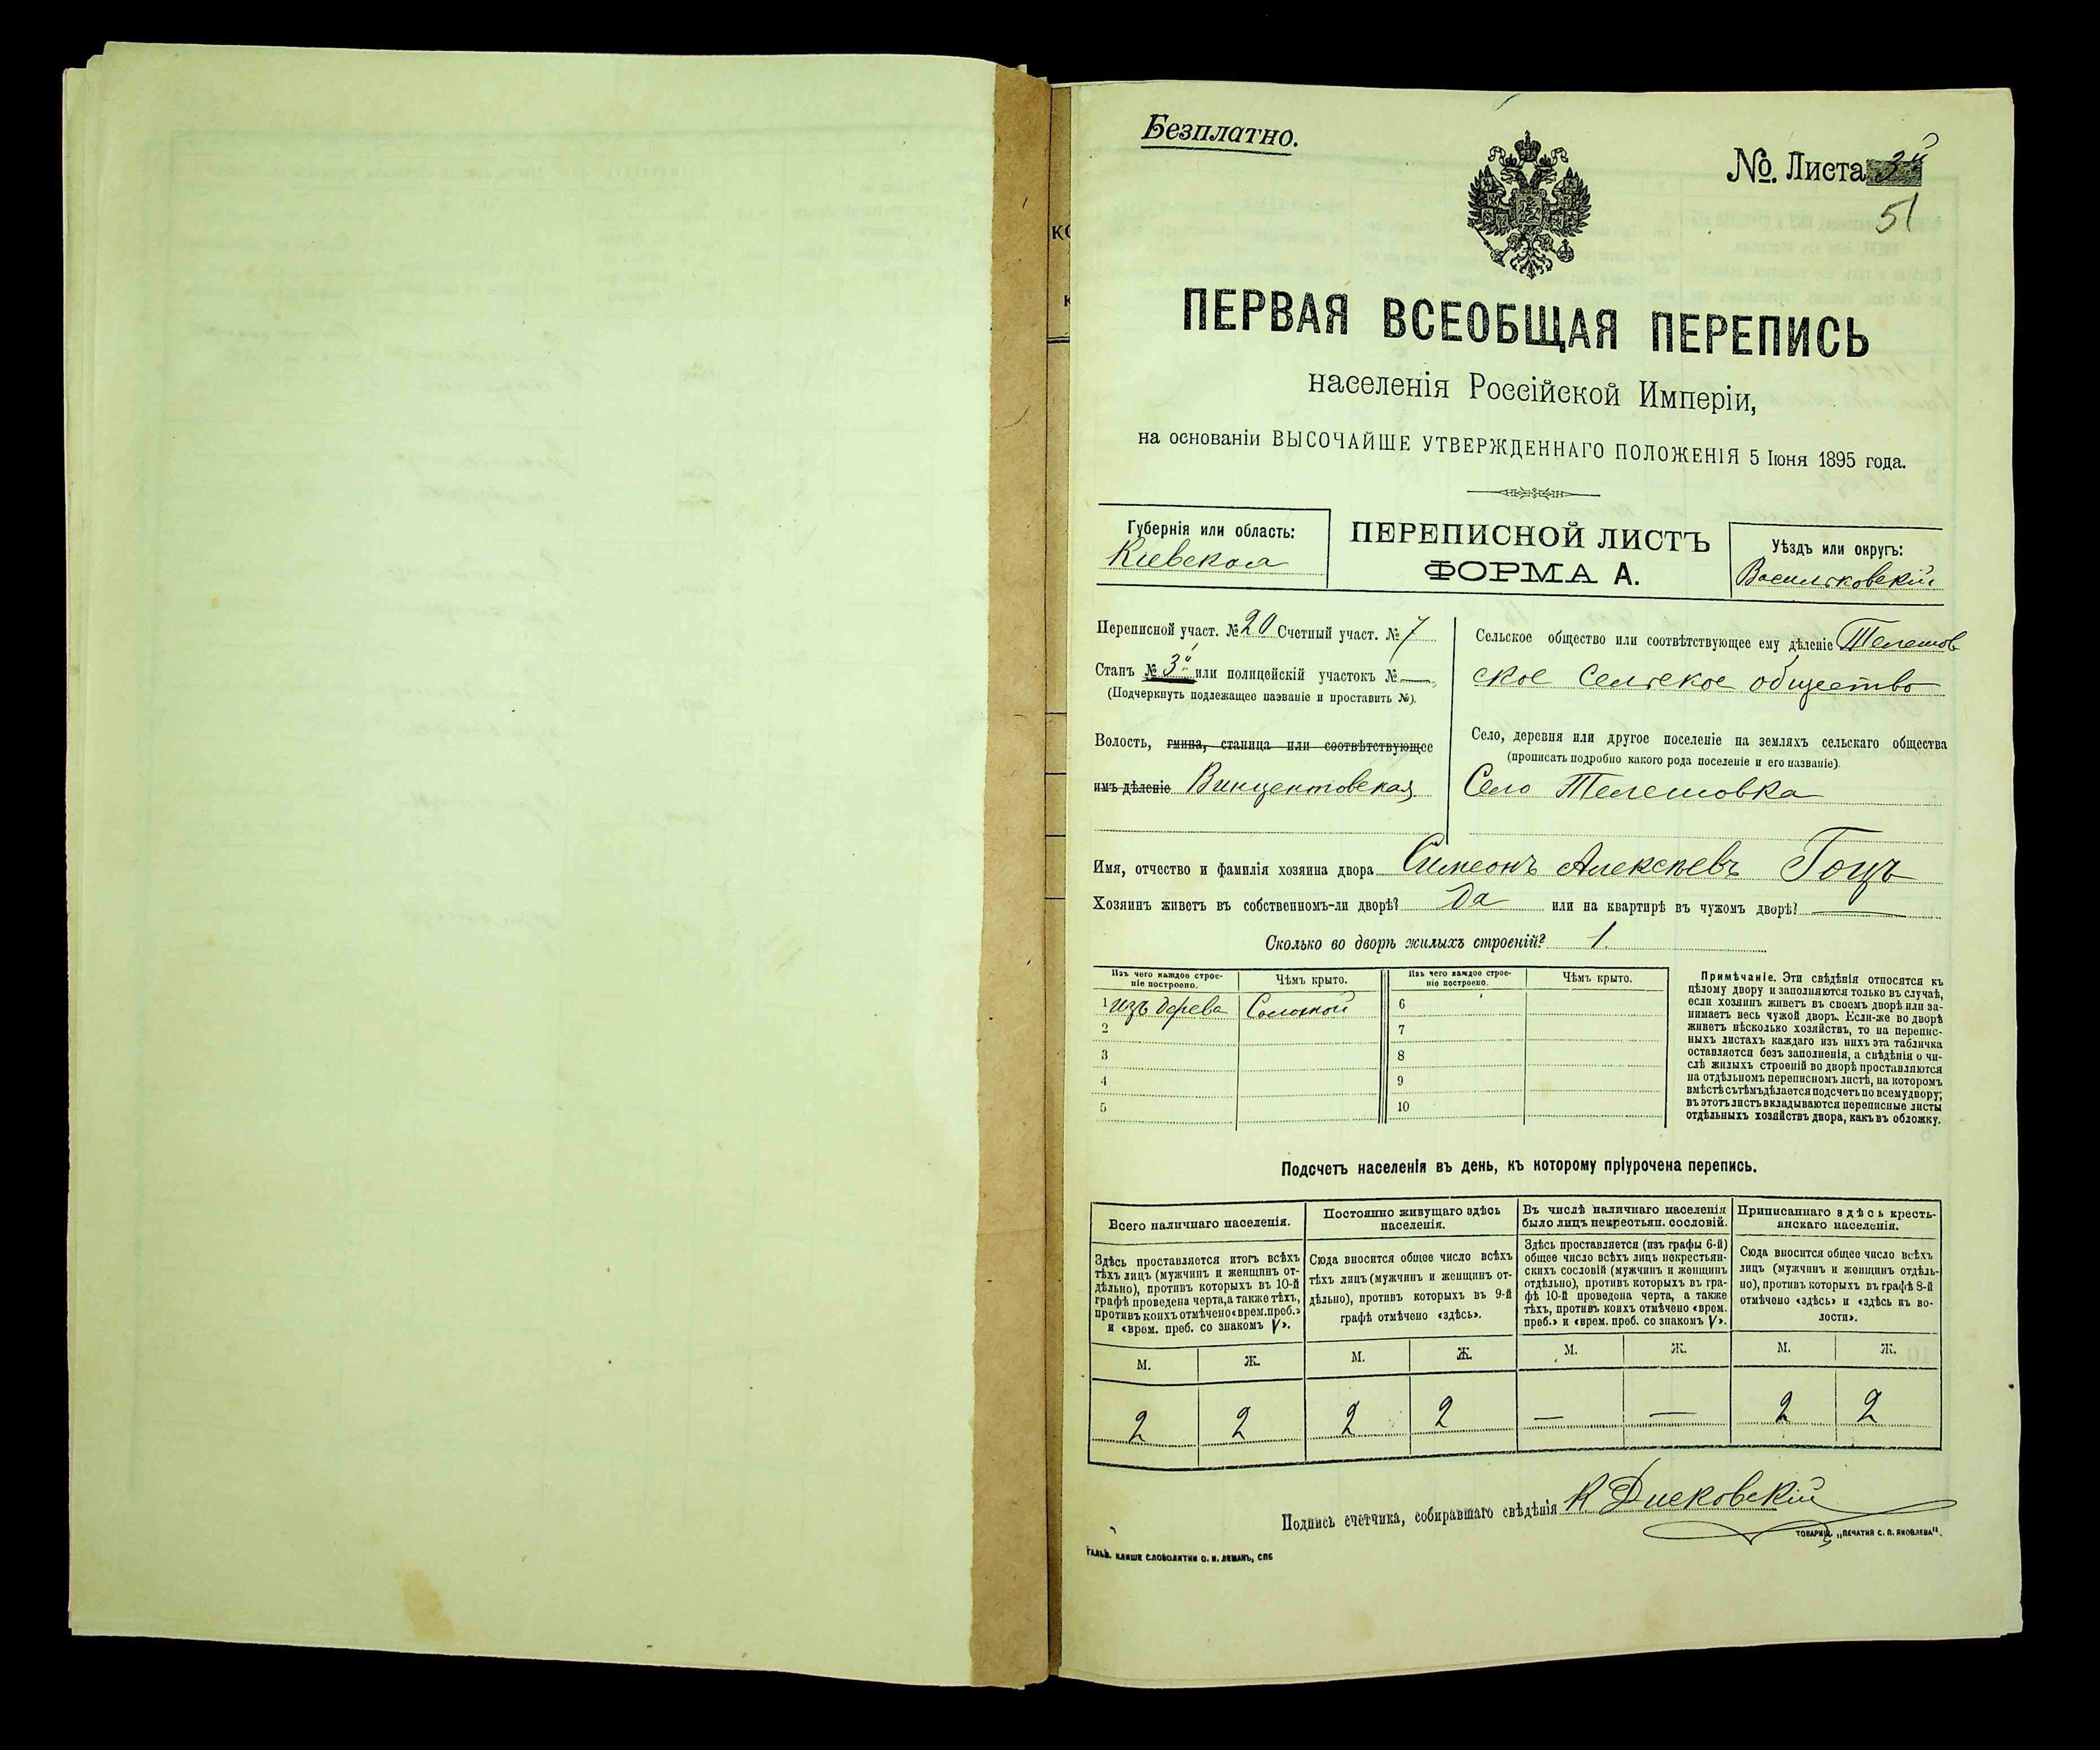 Безплатно.
№. Листа
51
ПЕРВАЯ ВСЕОБЩАЯ ПЕРЕПИСЬ
населенія Россійской Имперіи,
на основаніи ВЫСОЧАЙШЕ УТВЕРЖДЕННАГО ПОЛОЖЕНІЯ 5 Іюня 1895 года.
Губернія или область:
Кіевская
ПЕРЕПИСНОЙ ЛИСТЪ
ФОРМА А.
Уѣздъ или округъ:
Васильковскій
Переписной участ. № 20 Счетный участ. № 7
Станъ № 3й или полицейскій участокъ № —
(Подчеркнуть подлежащее названіе и проставить №).
Волость, гмина, станица или соотвѣтствующее
имъ дѣленіе Винцентовская
Сельское общество или соотвѣтствующее ему дѣленіе Телешов
ское Сельское общество
Село, деревня или другое поселеніе на земляхъ сельскаго общества
(прописать подробно какого рода поселеніе и его названіе).
Село Телешовка
Имя, отчество и фамилія хозяина двора Симеонъ Алексѣевъ Гоцъ
Хозяинъ живетъ въ собственномъ-ли дворѣ? Да или на квартирѣ въ чужомъ дворѣ? —
Сколько во дворѣ жилыхъ строеній? 1.
Изъ чего каждое строе-
ніе построено.
Чѣмъ крыто.
Изъ чего каждое строе-
ніе построено.
Чѣмъ крыто.
1 изъ дерева Соломой 6
2 7
3 8
4 9
5 10
Примѣчаніе. Эти свѣдѣнія относятся къ
цѣлому двору и заполняются только въ случаѣ,
если хозяинъ живетъ въ своемъ дворѣ или за-
нимаетъ весь чужой дворъ. Если-же во дворѣ
живетъ нѣсколько хозяйствъ, то на перепис-
ныхъ листахъ каждаго изъ нихъ эта табличка
оставляется безъ заполненія, а свѣдѣнія о чи-
слѣ жилыхъ строеній во дворѣ проставляются
на отдѣльномъ переписномъ листѣ, на которомъ
вмѣстѣ съ тѣмъ дѣлается подсчетъ по всему двору;
въ этотъ листъ вкладываются переписные листы
отдѣльныхъ хозяйствъ двора, какъ въ обложку.
Подсчетъ населенія въ день, къ которому пріурочена перепись.
Всего наличнаго населенія.
Здѣсь проставляется итогъ всѣхъ
тѣхъ лицъ (мужчинъ и женщинъ от-
дѣльно), противъ которыхъ въ 10-й
графѣ проведена черта, а также тѣхъ,
противъ коихъ отмѣчено «врем. преб.»
и «врем. преб. со знакомъ V».
Постоянно живущаго здѣсь
населенія.
Сюда вносится общее число всѣхъ
тѣхъ лицъ (мужчинъ и женщинъ от-
дѣльно), противъ которыхъ въ 9-й
графѣ отмѣчено «здѣсь».
Въ числѣ наличнаго населенія
было лицъ некрестьян. сословій.
Здѣсь проставляется (изъ графы 6-й)
общее число всѣхъ лицъ некрестьян-
скихъ сословій (мужчинъ и женщинъ
отдѣльно), противъ которыхъ въ гра-
фѣ 10-й проведена черта, а также
тѣхъ, противъ коихъ отмѣчено «врем.
преб.» и «врем. преб. со знакомъ V».
Приписаннаго здѣсь кресть-
янскаго населенія.
Сюда вносится общее число всѣхъ
лицъ (мужчинъ и женщинъ отдѣль-
но), противъ которыхъ въ графѣ 8-й
отмѣчено «здѣсь» и «здѣсь къ во-
лости».
М. Ж. М. Ж. М. Ж. М. Ж.
2 2 2 2 — — 2 2
Подпись счетчика, собиравшаго свѣдѣнія К Дисковскій
ТОВАРИЩ. „ПЕЧАТНЯ С. П. ЯКОВЛЕВА".
ГАЛЬВ. КЛИШЕ СЛОВОЛИТНИ О. И. ЛЕМАНЪ, СПБ